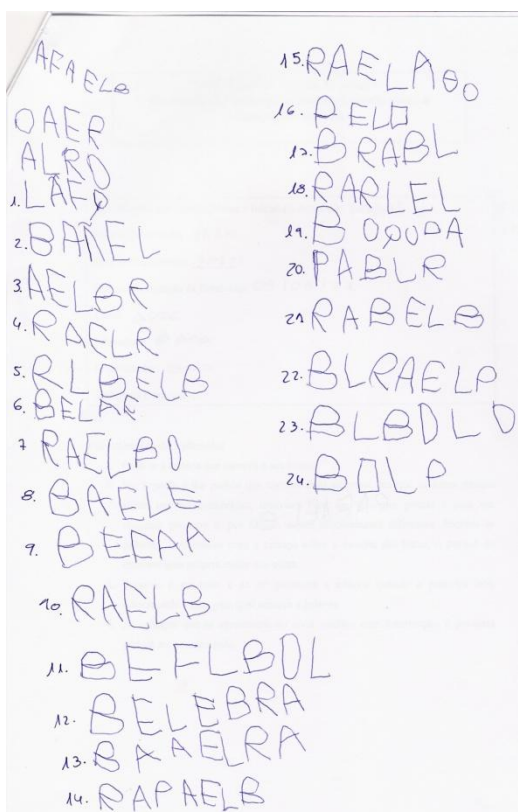 AFAELB
OAER
ALRO
1. LAFQ
2. BAÑEL
3. AELBR
4. RAELR
5. RLBELB
6. BELAF
7 RAELBD
8. BAELE
9. BEFAA
10. RAELB
11. BEFLBDL
12. BELEBRA
13. BAAELRA
14. RAPAELB
15. RAELAOO
16. PELD
17. BRABL
18. RARLEL
19. BOQUDA
20. PABLR
21. RABELB
22. BLRAELP
23. BLBDLD
24. BOLP